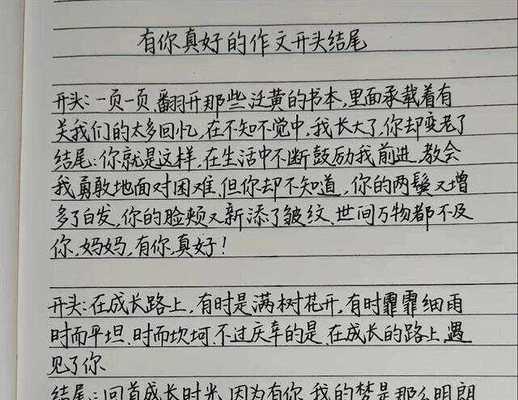 有你真好的作文开头结尾
开头:一页一页,翻开那些泛黄的书本,里面承载着有
关我们的太多回忆,在不知不觉中,我长大了,你却变老了
结尾:你就是这样,在生活中不断鼓励我前进,教会
我勇敢地面对困难.但你却不知道,你的两鬓又增
多了白发,你的脸颊又新添了皱纹、世间万物都不及
你,妈妈,有你,真好!
开头:在成长路上,有时是满树花开,有时霏霏细雨
时而平坦、时而坎坷、不过庆幸的是、在成长的路上,遇
见了你
结尾:回首成长时光,因为有你,我的梦是那么明朗